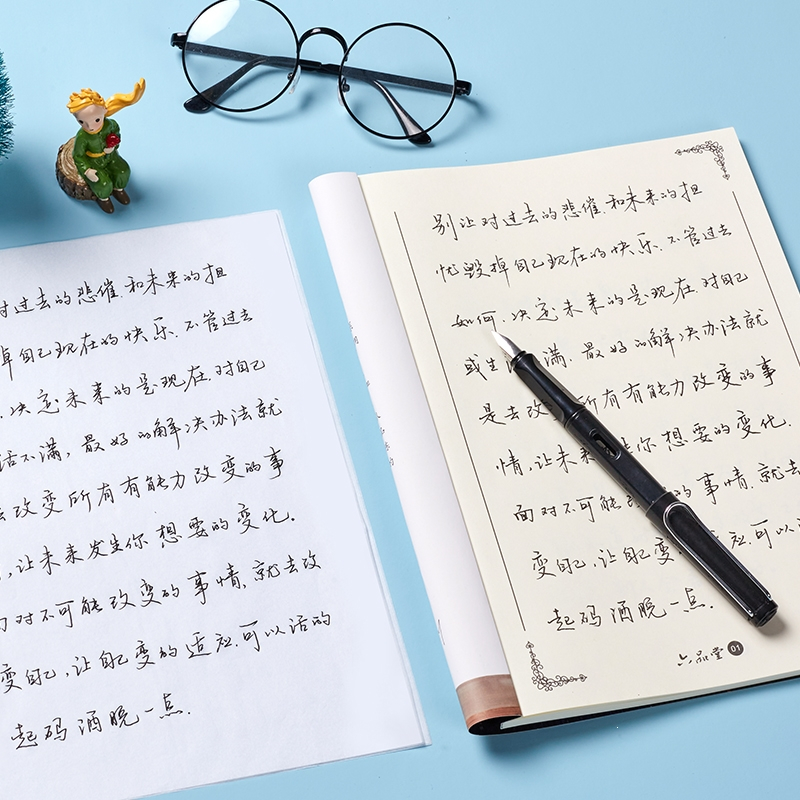 对过去的悲催.和未来的担
掉自己现在的快乐.不管过去
.决定未来的是现在.对自己
活不满,最好的解决办法就
去改变所有有能力改变的事
,让未来发生你想要的变化.
面对不可能改变的事情,就去改
变自己,让自己变的适应.可以活的
起码洒脱一点.
别让对过去的悲催.和未来的担
忧毁掉自己现在的快乐.不管过去
如何,决定未来的是现在.对自己
或生 满.最好的解决办法就
是去改 所有有能力改变的事
情,让未来 你想要的变化.
面对不可能 的事情.就去
变自己,让自己变 适应.可以
起码洒脱一点.
六品堂 01